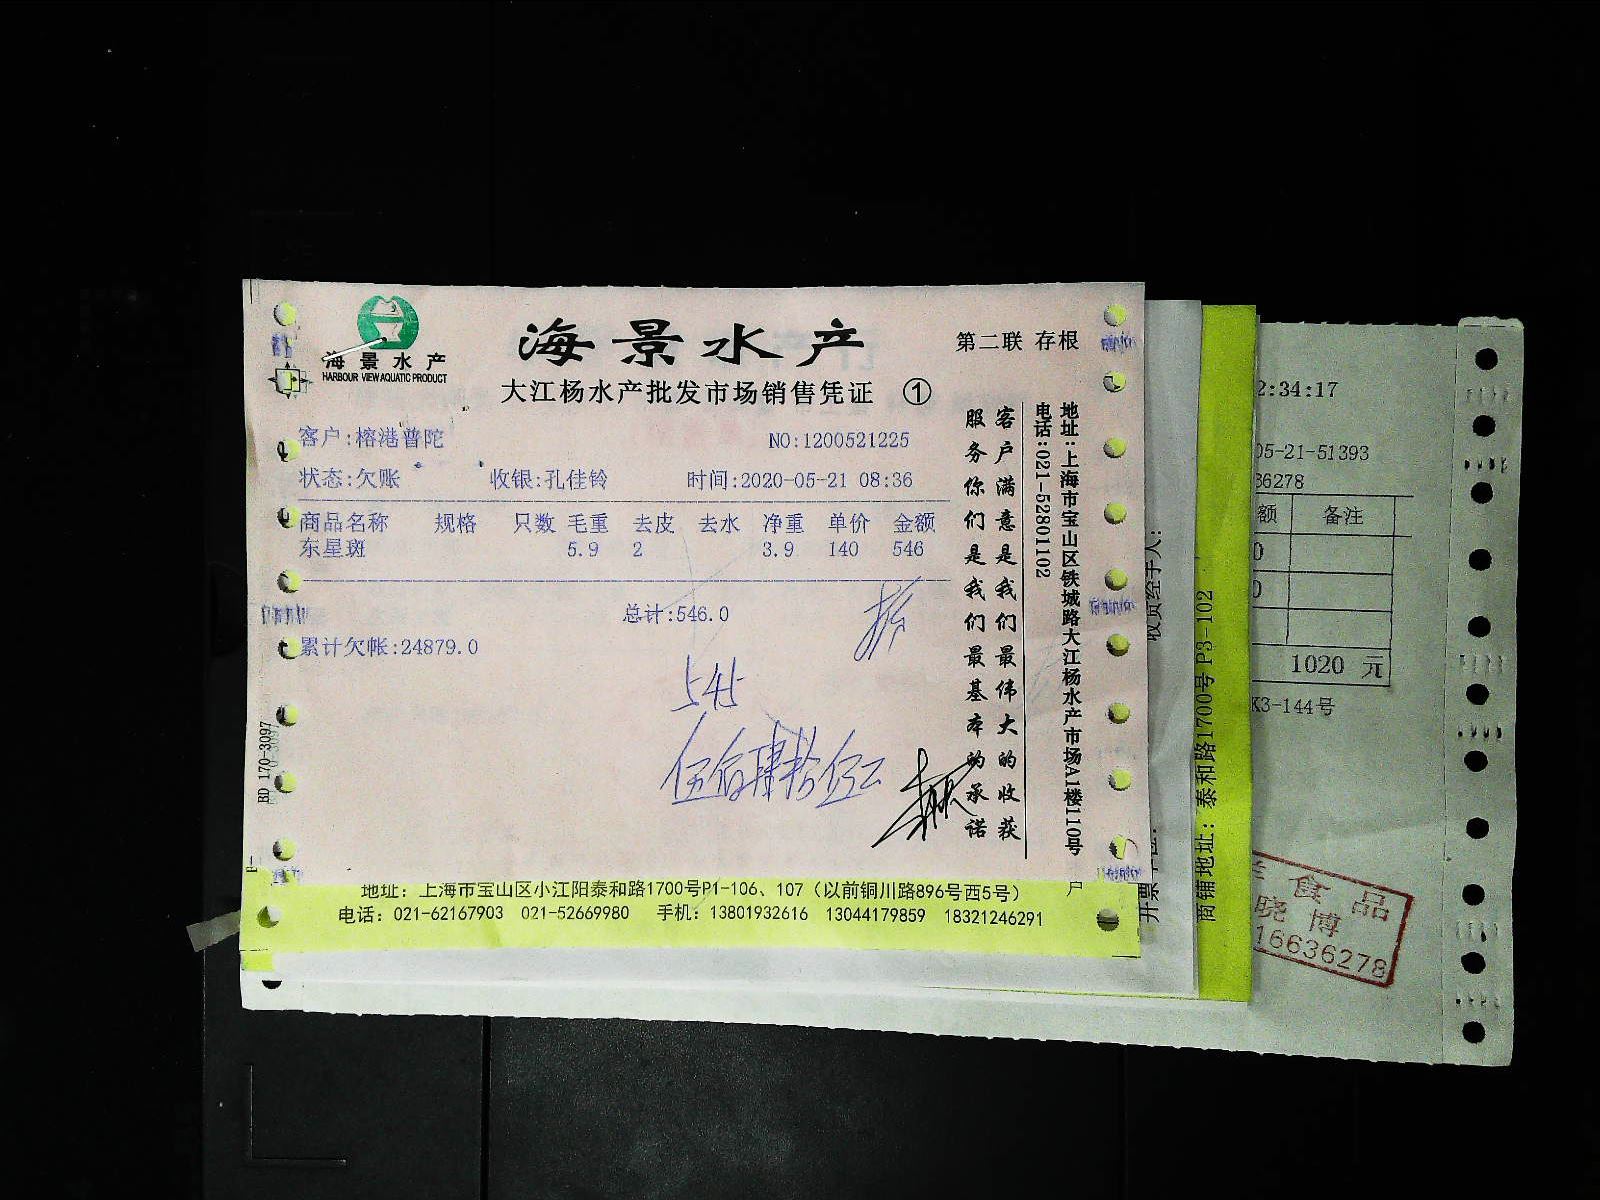 海景水产
HARBOUR VIEW AQUATIC PRODUCT
海景水产
第二联 存根
大江杨水产批发市场销售凭证 ①
客户:榕港普陀 NO:1200521225
状态:欠账 收银:孔佳铃 时间:2020-05-21 08:36
商品名称 规格 只数 毛重 去皮 去水 净重 单价 金额
东星斑 5.9 2 3.9 140 546
总计:546.0
累计欠帐:24879.0
545
伍佰肆拾伍元
客户满意是我们最伟大的收获
服务你们是我们最基本的承诺
地址:上海市宝山区铁城路大江杨水产市场A1楼110号
电话:021-52801102
BD 170-3097
地址：上海市宝山区小江阳泰和路1700号P1-106、107（以前铜川路896号西5号）
电话：021-62167903 021-52669980 手机：13801932616 13044179859 18321246291
户
收货经手人：
开票
商铺地址：泰和路1700号 P3-102
2:34:17
05-21-51393
36278
额 备注
0
0
1020 元
K3-144号
食品
晓博
16636278